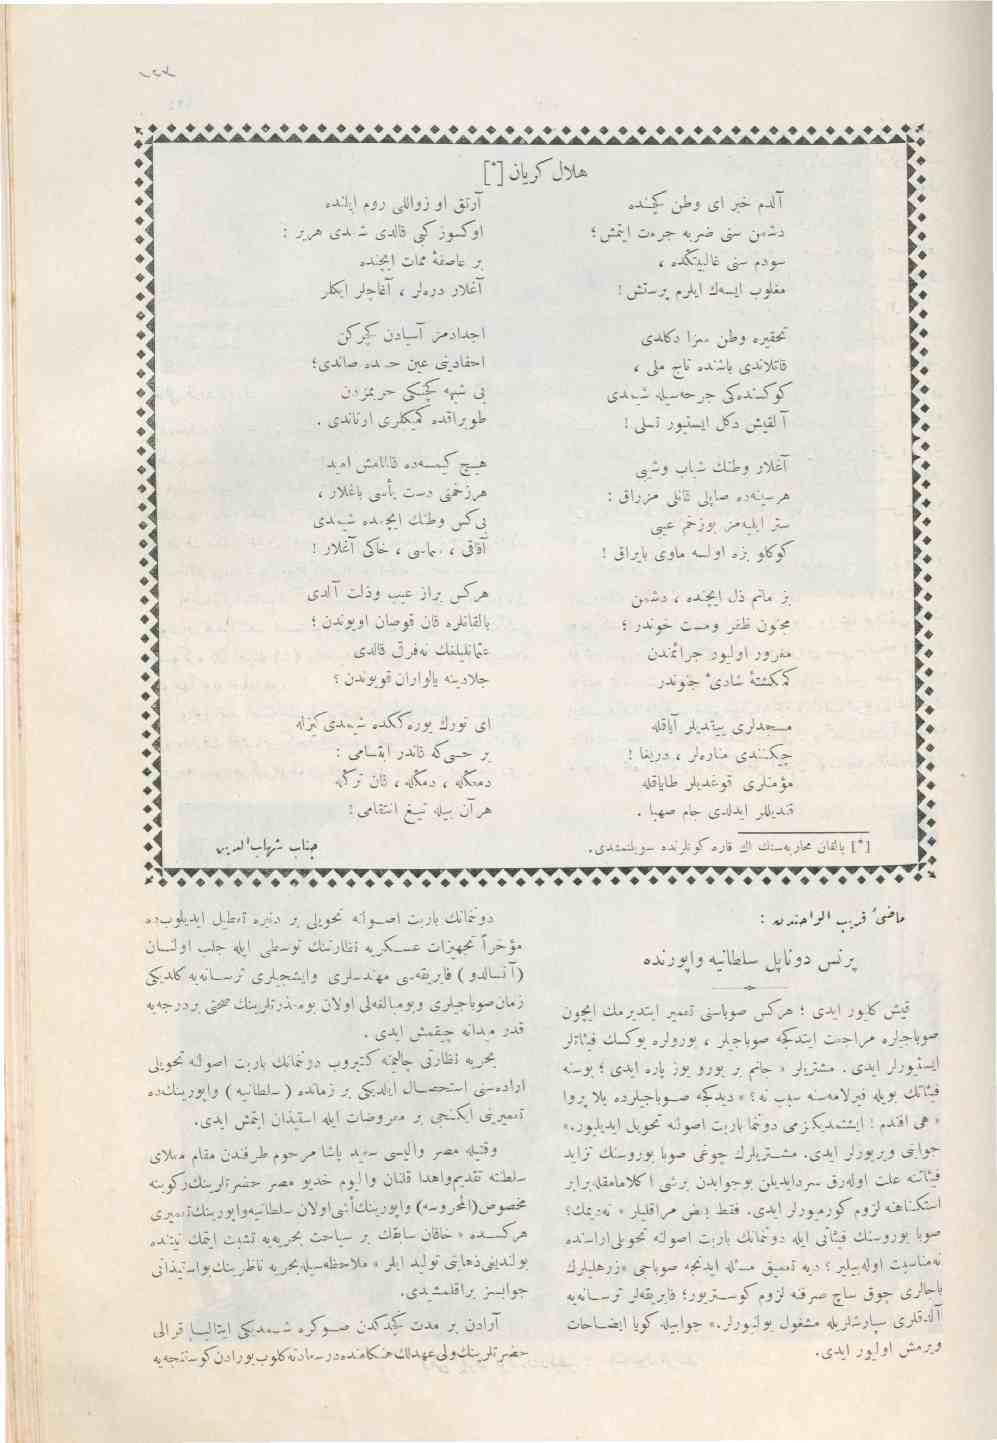 هلال كريان [*]
آلدم خبر ای وطن كچنده
دشمن سنی ضربه جرءت ایتمش ؛
سودم سنی غالبیتكده ،
مغلوب ایسه‌ك ایلرم پرستش !
تحقیره وطن سزا دكلدی
قاتلاندی باشنده تاج ملی ،
كوكسنده‌كی جرحه‌سیله شیمدی
آلقیش دكل ایستیور تسلی !
آغلار وطنك شباب وشیبی
هرسینه‌ده صاپلی قانلی مزراق :
ستر ایلیه‌مز بوزخم عیبی
كوكلو بزه اولسه ماوی بایراق !
بز ماتم ذل ایچنده ، دشمن
مجنون ظفر ومست خوندر ؛
مغرور اولیور جرائمندن
كمكشتهٔ شادیٔ جنوندر
مسجدلری ییقدیلر آیاقله
چیكنندی مناره‌لر ، دریغا !
مؤمنلری قوغدیلر طایاقله
قندیللر ایدلدی جام صهبا .
آرتق او زواللی روم ایلنده
اوكسوز كبی قالدی شیمدی هریر :
بر عاصفهٔ ممات ایچنده
آغلار دره‌لر ، آغاچلر ایكلر
اجدادمز آسیادن كچركن
احفادینی عین حـده صاندی ؛
بی شبهه كچنكی حربمزدن
طوپراقده كمیكلری اوتاندی .
هیچ كیمسه‌ده قالمامش امید !
هرزخمنی دست یأسی باغلار ،
بی‌كس وطنك ایچنده شیمدی
آفاقی ، سماسی ، خاكی آغلار !
هركس براز عیب وذلت آلدی
بالقانلره قان قوصان اویوندن ؛
عثمانلیلغك نه‌فرقی قالدی
جلادینه یالواران قویوندن ؟
ای تورك یوره‌ككده شیمدی كیزله
بر حسی‌كه قاندر ابتسامی :
دمكله ، دمكله ، قان تركله
هرآن بیله تیغ انتقامی !
جناب شهاب‌الدین
[*] بالقان محاربه‌سنك اك قاره كونلرنده سویلنمشدی .
ماضیٔ قریب الواحندن :
پرنس دوناپل سلطانیه واپورنده
قیش كلیور ایدی ؛ هركس صوباسنی تعمیر ایتدیرمك ایچون
صوباجیلره مراجعت ایتدكجه صوباجیلر ، بورولره یوكسك فیئاتلر
ایستیورلر ایدی . مشتریلر « جانم بر بورو یوز پاره ایدی ؛ بوسنه
فیئاتك بویله فیرلامه‌سنه سبب نه؟ » دیدكجه صوباجیلرده بلا پروا
« هی افندم ! ایشتمدیكزمی دونما باربت اصولنه تحویل ایدیلیور.»
جوابنی ویریورلر ایدی. مشتریلرك چوغی صوبا بوروسنك تزاید
فیئاتنه علت اوله‌رق سردایدیلن بوجوابدن برشی اكلامامقله‌برابر
استكناهنه لزوم كورمیورلر ایدی. فقط بعض مراقلیلر « نه‌دیمك؟
صوبا بوروسنك فیئاتی ایله دونمانك باربت اصولنه تحویلی‌آراسنده
نه‌مناسبت اوله‌بیلیر ؟ دیه تعمیق مسئله ایدنجه صوباجی «زرهلیلرك
باجالری چوق ساج صرفنه لزوم كوستریور؛ فابریقه‌لر ترسانه‌یه
آلدقلری سپارشلریله مشغول بولنیورلر.» جوابیله كویا ایضاحات
ویرمش اولیور ایدی.
دونمانك باربت اصولنه تحویلی بر دنبره تعطیل ایدیلوب‌ده
مؤخراً تجهیزات عسكریه نظارتنك توسطی ایله جلب اولنان
(آنسالدو) فابریقه‌سی مهندسلری وایشجیلری ترسانه‌یه كلدیكی
زمان‌صوباجیلری وبومبالغه‌لی اولان بومعذرتلرینك صحتی بردرجه‌یه
قدر میدانه چیقمش ایدی .
بحریه نظارتی جالبنه كتیروب دونمانك باربت اصولنه تحویلی
اراده‌سنی استحصال ایلدیكی بر زمانده ( سلطانیه ) واپورینك‌ده
تعمیرینی ایكنجی بر معروضات ایله استیذان ایتمش ایدی.
وقتیله مصر والیسی سعید پاشا مرحوم طرفندن مقام معلای
سلطنته تقدیم‌واهدا قلنان والیوم خدیو مصر حضرتلرینك‌ركوبنه
مخصوص(المحروسه) واپورینك‌أشی‌اولان سلطانیه‌واپورینك‌تعمیری
هركسده « خاقان سابقك بر سیاحت بحریه‌یه تشبث ایتمك نیتنده
بولندیغی‌ذهابنی تولید ایلر » ملاحظه‌سیله‌بحریه ناظرینك‌بواستیذانی
جوابسز براقلمشیدی.
آرادن بر مدت كچدكدن صوكره شیمدیكی ایتالیا قرالی
حضرتلرینك‌ولی‌عهدلك‌هنكامنده‌درسعادته‌كلوب‌بورادن‌كوستنجه‌یه